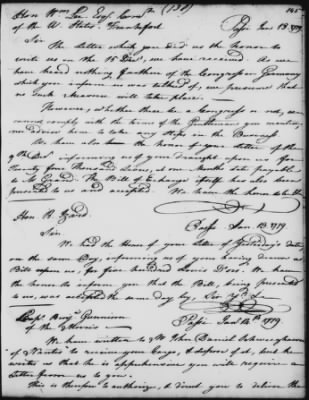 Hon Wm Lee Esqr Comr (138) Passi Jan 13. 1779 145
of the U States, Frankfort
Sir
The Letter which you did us the honor to
write us on the 15 Decr, we have received. As we
have heard nothing further of the Congress in Germany
which you inform us was talked of, we presume that
no such measure will take place.
However, whether there be a Congress or not, we
cannot comply with the terms of the Gentleman you mention,
nor advise him to take any Steps in the Business
We have also the honor of your Letter of the
9th Decr informing us of your draught upon us for
Twenty four Thousand Livres, at one Months date payable
to Mr Grand. The Bill of Exchange itself has also been
presented to us and accepted. We have the honor to be
Hon R. Izard. Passi Jan 13. 1779
Sir.
We had the Honor of your Letter of Yesterdays date
on the same Day, informing us of your having drawn a
Bill upon us, for five hundred Louis D'ors. We have
the honor to inform you that the Bill, being presented
to us, was accepted the same day by, Sir
Capt Gunnison Passi Jan 14th 1779
of the Morris
We have written to Mr John Daniel Schweighauser
of Nantes to receive your Cargo, & dispose of it, but he
writes us that he is apprehensive you will require a
Letter from us to you.
This is therefore to authorize, & direct you to deliver the